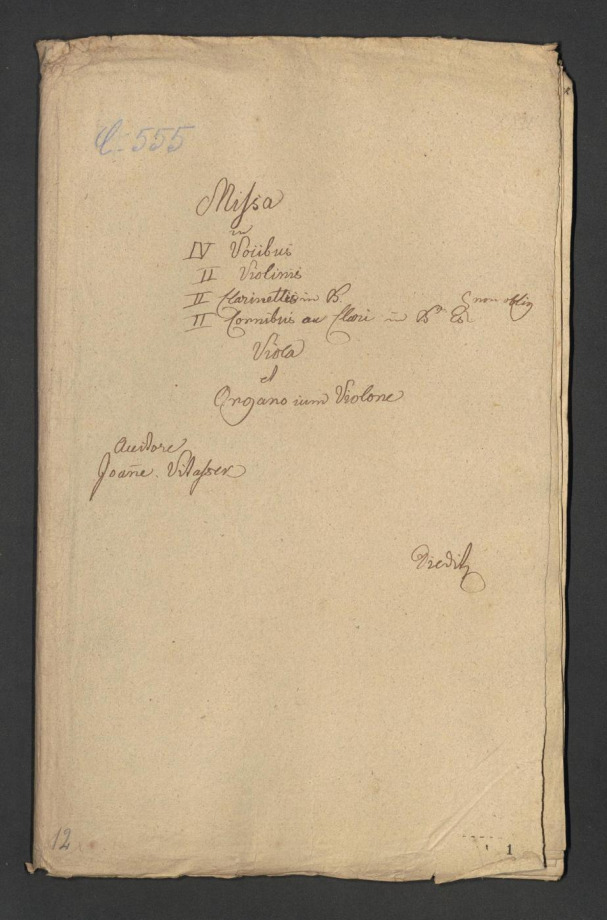 C. 555
Missa
in
IV Vocibus
II Violinis
II Clarinettis in B.
II Cornibus ac Clari in B Es non oblig
Viola
et
Organo cum Violone
Auctore
Joan̄e. Vitasser
12
1